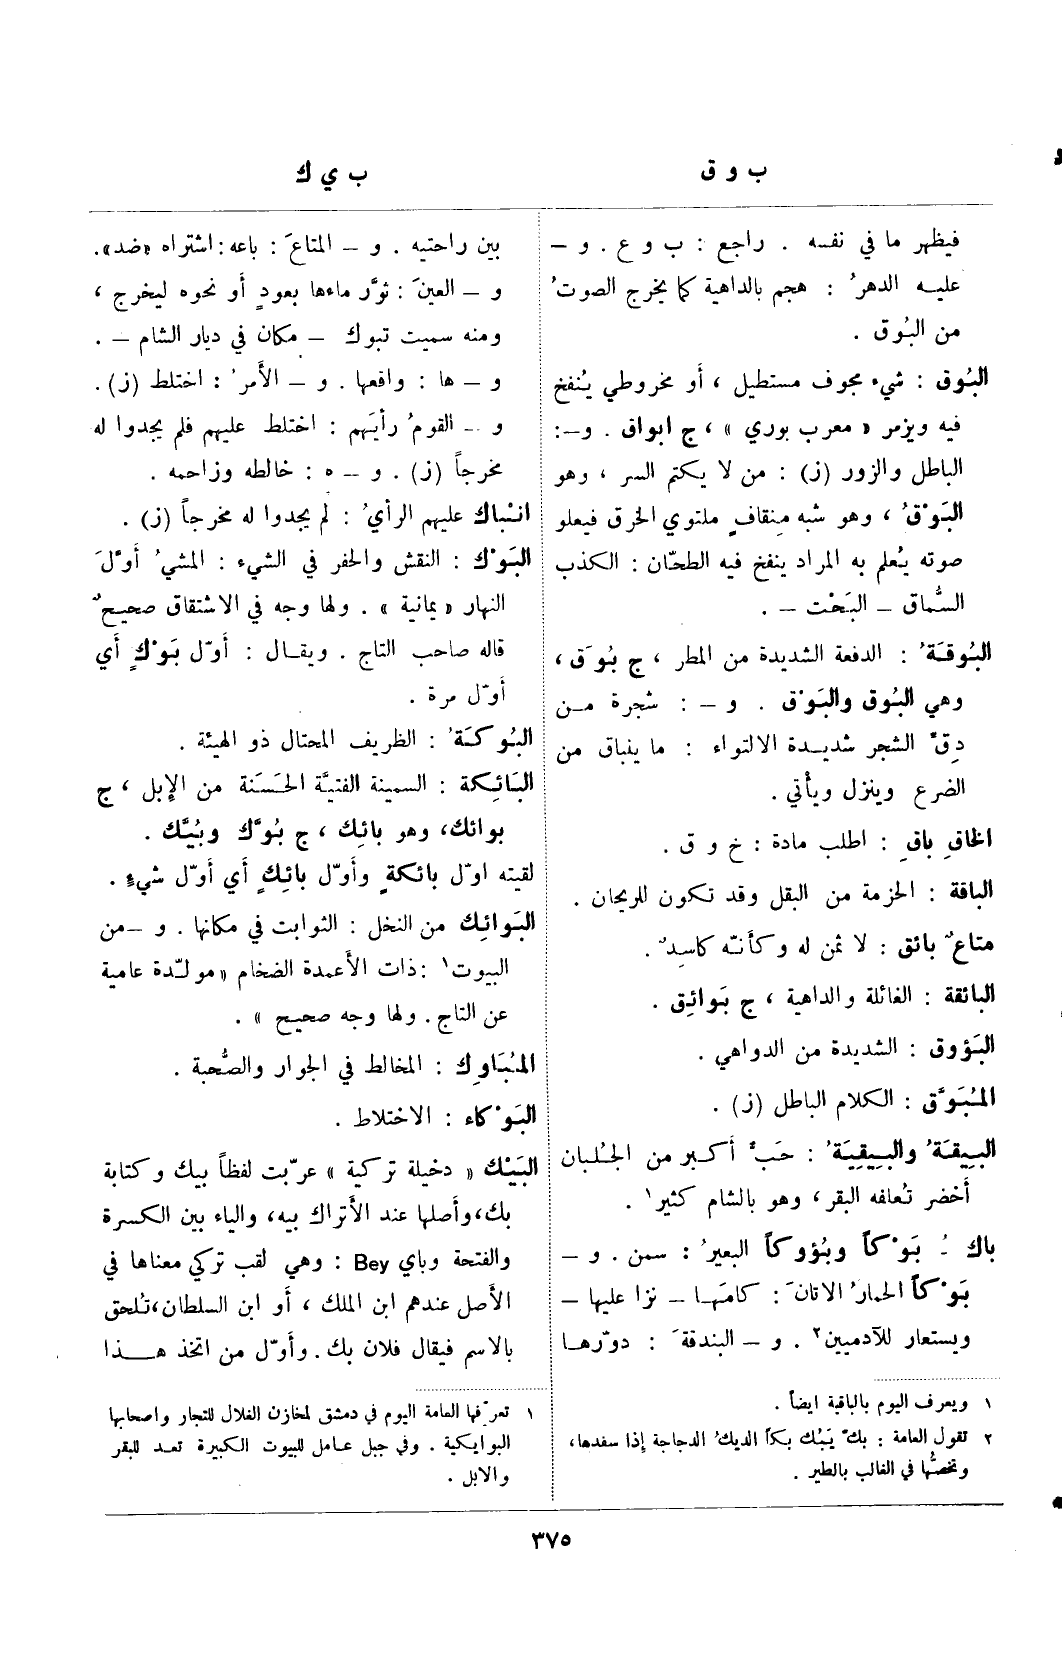 ب و ق
ب ي ك
فيظهر ما في نفسه . راجع : ب و ع . و –
عليه الدهرُ : هجم بالداهية كما يخرج الصوتُ
من البُوق .
البُوق : شيء مجوف مستطيل ، أو مخروطي يُنفخ
فيه ويزمر « معرب بوري » ، ج ابواق . و–:
الباطل والزور (ز) : من لا يكتم السر ، وهو
البَوْقُ ، وهو شبه مِنقافٍ ملتوي الخرق فيعلو
صوته يُعلم به المراد ينفخ فيه الطحّان : الكذب
السُّماق – البَحْت – .
البُوقَةُ : الدفعة الشديدة من المطر ، ج بُوَق ،
وهي البُوق والبَوْق . و – : شجرة من
دِقِّ الشجر شديدة الالتواء : ما ينباق من
الضرع وينزل ويأتي .
الخاقِ باقِ : اطلب مادة : خ و ق .
الباقة : الحزمة من البقل وقد تكون للريحان .
متاعٌ بائق : لا ثمن له وكأنّه كاسِدٌ .
البائقة : الغائلة والداهية ، ج بَوائِق .
البَؤوق : الشديدة من الدواهي .
المُبَوَّق : الكلام الباطل (ز) .
البِيقَةُ والبِيقِيَةُ : حَبٌّ أكبر من الجُلبان
أخضر تُعافه البقر ، وهو بالشام كثير١ .
باك ُ بَوْكاً وبُؤوكاً البعيرُ : سمن . و –
بَوْكاً الحمارُ الاتانَ : كامَها – نزا عليها –
ويستعار للآدميين٢ . و – البندقةَ : دوّرها
١ ويعرف اليوم بالباقية ايضاً .
٢ تقول العامة : بكّ يَبُك بكاً الديكُ الدجاجة إذا سفدها،
وتخصُّها في الغالب بالطير .
بين راحتيه . و – المتاعَ : باعه : اشتراه «ضد».
و – العينَ : ثوَّر ماءها بعودٍ أو نحوه ليخرج ،
ومنه سميت تبوك – مكان في ديار الشام – .
و – ها : واقعها . و – الأمرُ : اختلط (ز) .
و – القومُ رأيَهم : اختلط عليهم فلم يجدوا له
مخرجاً (ز) . و – ه : خالطه وزاحمه .
انْباك عليهم الرأيُ : لم يجدوا له مخرجاً (ز) .
البَوْك : النقش والحفر في الشيء : المشيُ أوَّلَ
النهار « يمانية » . ولها وجه في الاشتقاق صحيحٌ
قاله صاحب التاج . ويقال : أوّل بَوْكٍ أي
أوّل مرة .
البُوكَةُ : الظريف المحتال ذو الهيئة .
البَائِكة : السمينة الفتيَّة الحَسَنة من الإبل ، ج
بوائك، وهو بائِك ، ج بُوَّك وبُيَّك .
لقيته اوّل بائكةٍ وأوّل بائِكٍ أي أوّل شيءٍ .
البَوائِك من النخل : الثوابت في مكانها . و –من
البيوت١ :ذات الأعمدة الضخام «مولّدة عامية
عن التاج . ولها وجه صحيح » .
المُبَاوِك : المخالط في الجوار والصُّحبة .
البَوْكاء : الاختلاط .
البَيْك « دخيلة تركية » عرّبت لفظاً بيك وكتابة
بك،وأصلها عند الأتراك بيه، والياء بين الكسرة
والفتحة وباي Bey : وهي لقب تركي معناها في
الأصل عندهم ابن الملك ، أو ابن السلطان،تُلحق
بالاسم فيقال فلان بك . وأوّل من اتخذ هذا
١ تعرّفها العامة اليوم في دمشق لمخازن الغلال للتجار واصحابها
البوايكية . وفي جبل عامل للبيوت الكبيرة تعد للبقر
والابل .
٣٧٥